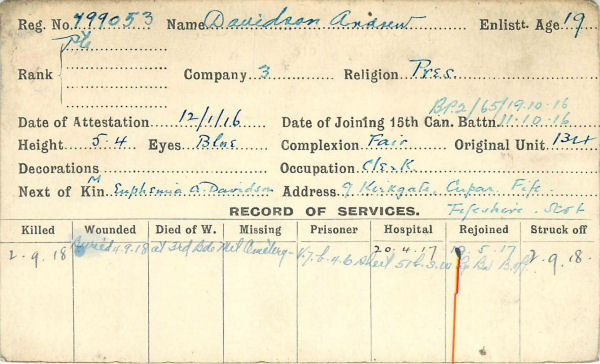 Reg. No. 799053 Name Davidson Andrew Enlistt. Age 19
Rank Pte Company 3 Religion Pres.
B.P.2/65/19.10.16
Date of Attestation 12/1/16 Date of Joining 15th Can. Battn. 11.10.16
Height 5.4 Eyes Blue Complexion Fair Original Unit 134
Decorations Occupation Clerk
Next of Kin M Euphemia A Davidson Address 9 Kirkgate, Cupar Fife
RECORD OF SERVICES. Fifeshire. Scot
Killed Wounded Died of W. Missing Prisoner Hospital Rejoined Struck off
20.4.17 19.5.17
2.9.18 Buried 4.9.18 at 3rd Bde Met Cemetery - V.7.b.4.6 Sheet 51b. S.W. 2.9.18.